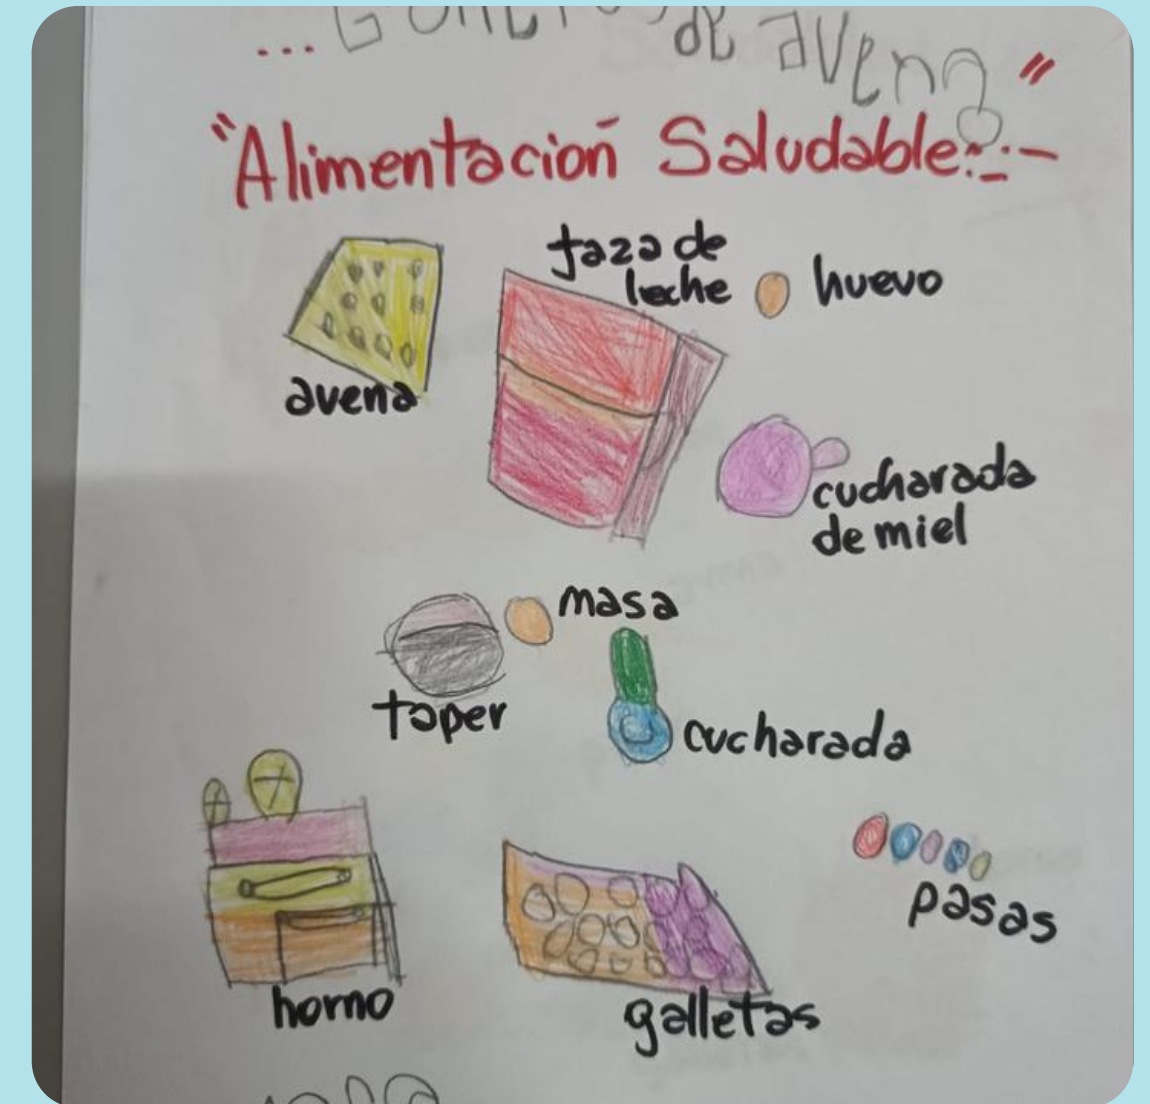 de avena"
"Alimentación Saludable:.-
taza de
leche
huevo
avena
cucharada
de miel
masa
taper
cucharada
pasas
horno
galletas